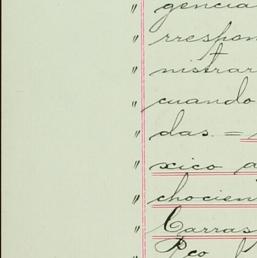 " gencia
" rrespon
" nistrar
" cuando
" das. =
" xico a
" chocien
" Carras
" Pco